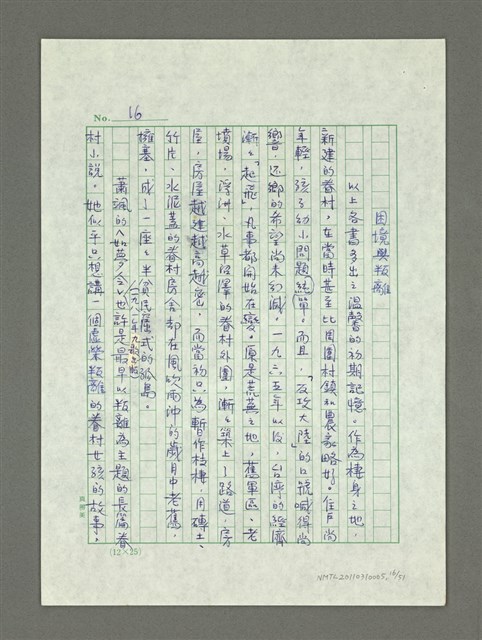 No. 16
困境與叛離
以上各書多出之溫馨的初期記憶。作為棲身之地，
新建的眷村，在當時甚至比周圍村鎮和農家略好。住戶尚
年輕，孩子幼小問題純單。而且，「反攻大陸」的口號喊得尚
響，还鄉的希望尚未幻滅。一九六五年以後，台灣的經濟
漸漸「起飛」，凡事都開始在變。原是荒蕪之地，舊軍區、老
墳場、浮洲、水草沼澤的眷村外圍，漸漸築上了路道，房
屋，房屋越建越高越密，而當初只為暫作枝棲，用磚土、
竹片、水泥蓋的眷村房舍却在風吹雨沖的歲月中老舊，
擁塞，成了一座座半貧民窟式的孤島。
蕭颯的《如夢令》也許是最早以叛離為主題的長篇眷
(一九八一年九歌出版)
村小說。她似乎只想講一個虛榮叛離的眷村女孩的故事。
(12×25)
NMTL20110310005. 16/53